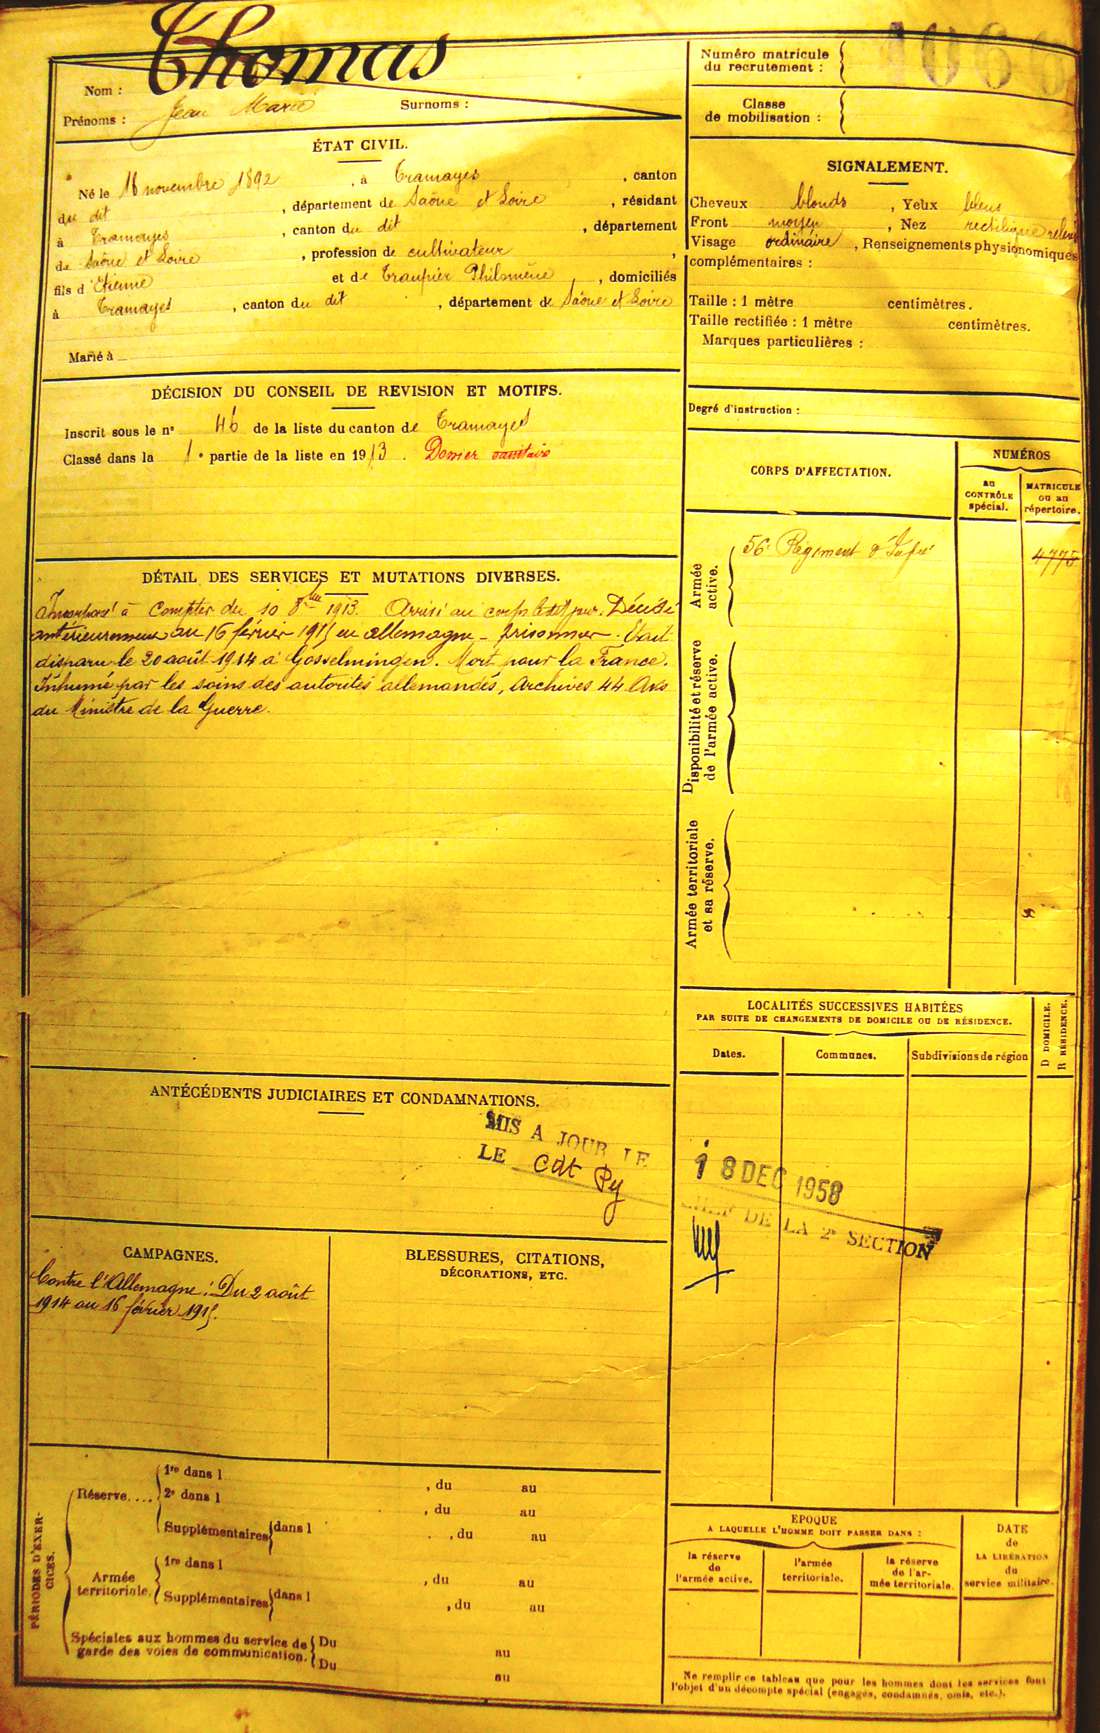 Thomas
Nom :
Prénoms : Jean Marie Surnoms :
Numéro matricule
du recrutement :
Classe
de mobilisation :
ÉTAT CIVIL.
Né le 16 novembre 1892, à Tramayes, canton
du dit, département de Saône et Loire, résidant
à Tramayes, canton du dit, département
de Saône et Loire, profession de cultivateur,
fils d'Etienne et de Philomène, domiciliés
à Tramayes, canton du dit, département de Saône et Loire
Marié à
SIGNALEMENT.
Cheveux blonds, Yeux bleus
Front moyen, Nez rectiligne relevé
Visage ordinaire, Renseignements physionomiques
complémentaires :
Taille : 1 mètre centimètres.
Taille rectifiée : 1 mètre centimètres.
Marques particulières :
Degré d'instruction :
DÉCISION DU CONSEIL DE REVISION ET MOTIFS.
Inscrit sous le n° 46 de la liste du canton de Tramayes
Classé dans la 1e partie de la liste en 1913. Dossier sanitaire
DÉTAIL DES SERVICES ET MUTATIONS DIVERSES.
Incorporé à compter du 10 8bre 1913. Arrivé au corps le dit jour. Décédé
antérieurement au 16 février 1915 en Allemagne - prisonnier. Etait
disparu le 20 août 1914 à Gosselmingen. Mort pour la France.
Inhumé par les soins des autorités allemandes, Archives 44
du Ministre de la Guerre.
CORPS D'AFFECTATION.
NUMÉROS
au
CONTRÔLE
spécial.
MATRICULE
ou au
répertoire.
Armée
active.
56e Régiment d'Inf
4775
Disponibilité et réserve
de l'armée active.
Armée territoriale
et sa réserve.
LOCALITÉS SUCCESSIVES HABITÉES
PAR SUITE DE CHANGEMENTS DE DOMICILE OU DE RÉSIDENCE.
Dates.
Communes.
Subdivisions de région
D DOMICILE.
R RÉSIDENCE.
ANTÉCÉDENTS JUDICIAIRES ET CONDAMNATIONS.
MIS A JOUR LE 18 DEC 1958
LE Cdt Py
CHEF DE LA 2e SECTION
CAMPAGNES.
Contre l'Allemagne : Du 2 août
1914 au 16 février 1915.
BLESSURES, CITATIONS,
DÉCORATIONS, ETC.
PÉRIODES D'EXER-
CICES.
Réserve....
1re dans l , du au
2e dans l , du au
Supplémentaires dans l , du au
Armée
territoriale.
1re dans l , du au
Supplémentaires dans l , du au
Spéciales aux hommes du service de
garde des voies de communication.
Du au
Du au
EPOQUE
A LAQUELLE L'HOMME DOIT PASSER DANS :
la réserve
de
l'armée active.
l'armée
territoriale.
la réserve
de l'ar-
mée territoriale.
DATE
de
LA LIBÉRATION
du
service militaire.
Ne remplir ce tableau que pour les hommes dont les services font
l'objet d'un décompte spécial (engagés, condamnés, omis, etc.).